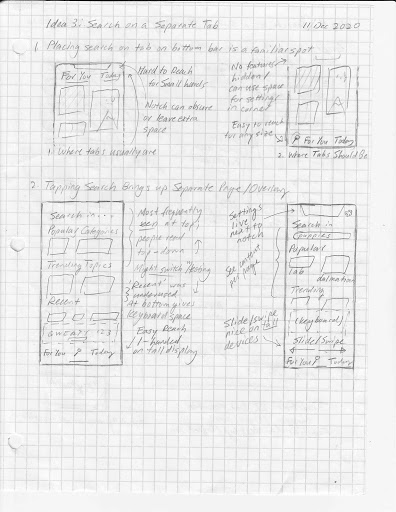 Idea 3: Search on a Separate Tab
11 Dec 2020
1. Placing search on tab on bottom bar is a familiar spot
For You Today
Hard to Reach
for Small hands
Notch can obscure
or leave extra
space
1. Where tabs usually are
No features
hidden/
can use space
for settings
in corner
Easy to reach
for any size
For You Today
2. Where Tabs Should Be
2. Tapping Search Brings up Separate Page/Overlay
Search in...
Popular Categories
Trending Topics
Recent
QWERTY 123
For You Today
Most frequently
seen at top,
people read
top-down
Might switch
"Recent" was
underused
At bottom gives
Keyboard space
Easy Reach
1-handed
on tall display
Settings
live
next to
notch
See content
per page
Slide/Swipe
nice on tall
devices
Search in
Puppies
Popular
Lab
dalmatian
Trending
(keyboard)
Slide/Swipe
For You Today